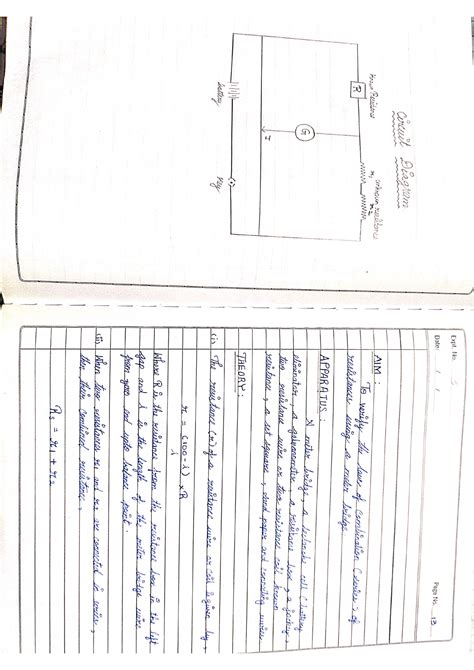 Circuit Diagram
known Resistance
R
unknown resistance
r₁ r₂
G
I
battery
Key
Expt. No. 5
Date: / /
Page No. 13
AIM :
To verify the law of Combination (series) of
resistances using a meter bridge.
APPARATUS :
A meter bridge, a leclanche cell (battery
eliminator, a galvanometer, a resistance box, a jockey,
two resistance wires or two resistance coil known
resistance, a set square, sand paper and connecting wires
THEORY :
(i) The resistance (r) of a resistance wire or coil is given by,
r = (100-l)/l × R
Where R is the resistance from the resistance box in the left
gap and l is the length of the meter bridge wire
from zero end upto balance point.
(ii) When two resistances r₁ and r₂ are connected in series,
then their combined resistance,
Rs = r₁ + r₂